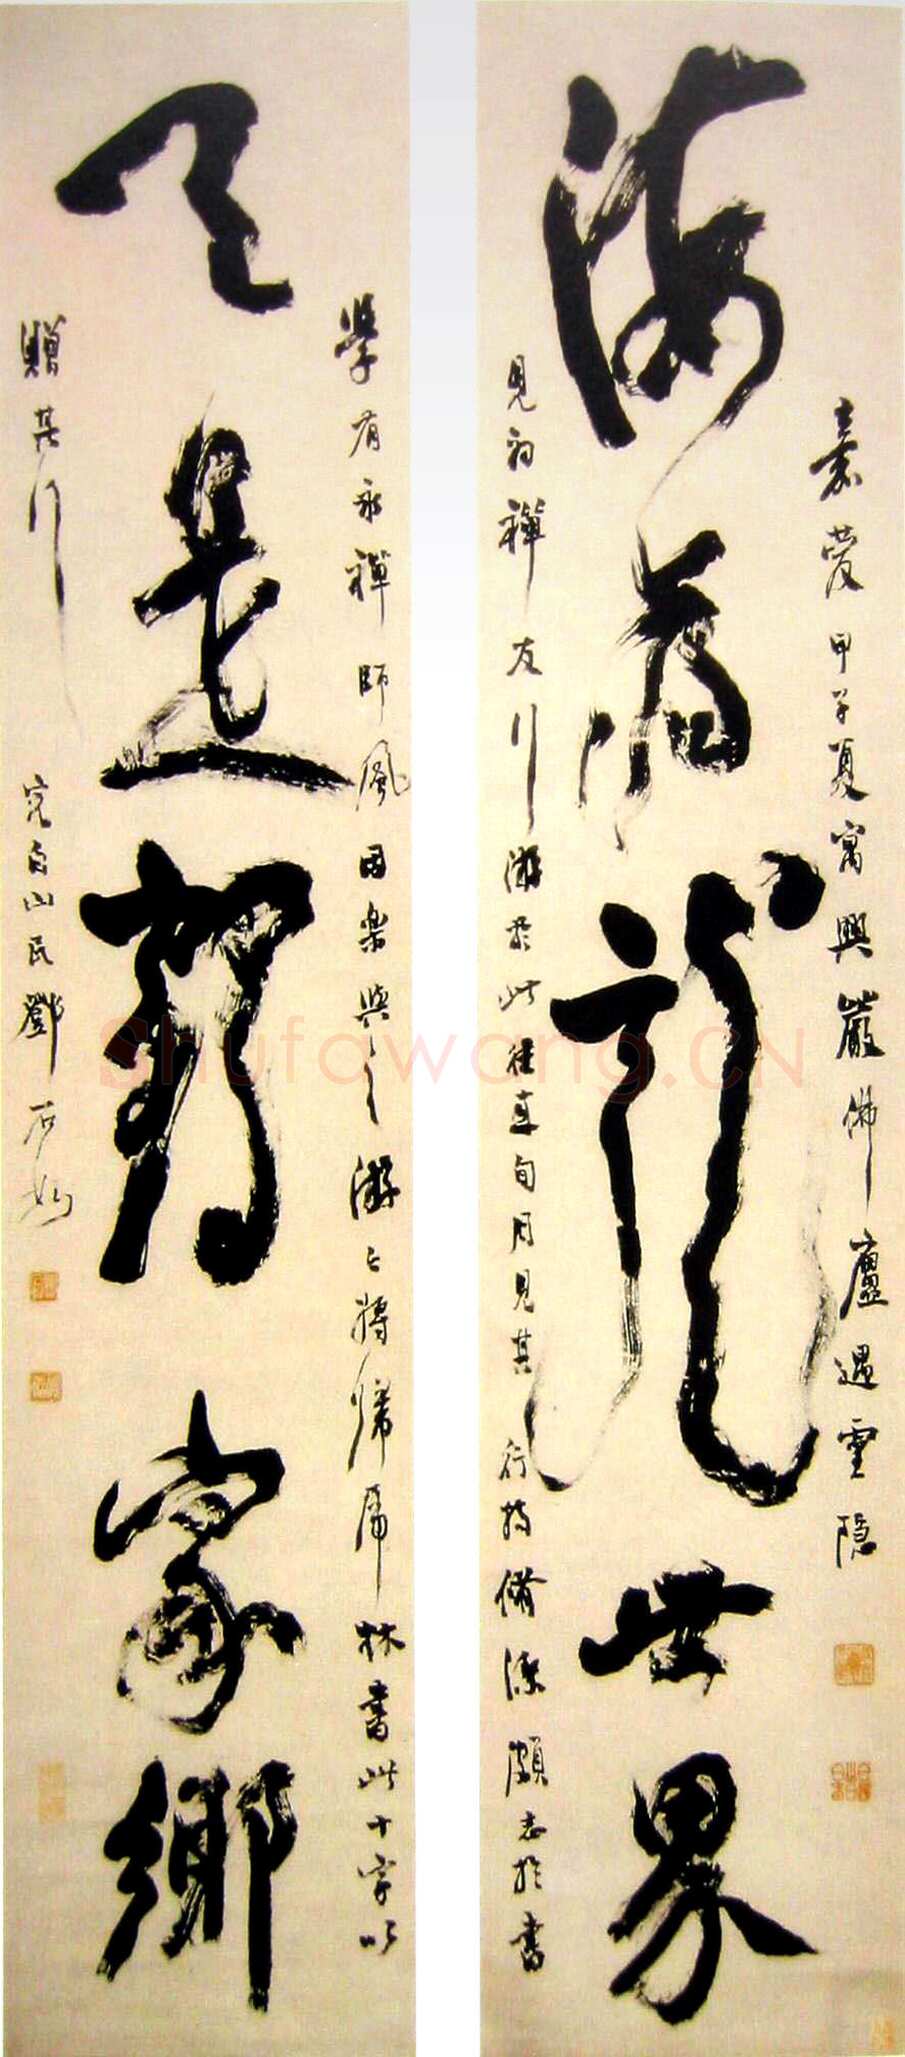 海為龍世界
嘉慶甲子夏寓興嚴佛廬遇雲隱
見初禪友行游於此往真旬月見其行持脩潔頗志於書
天是鶴家鄉
學有永禪師風因樂與之游今將歸虎林書此十字以
贈其行
完白山民鄧石如
Shufawang.CN